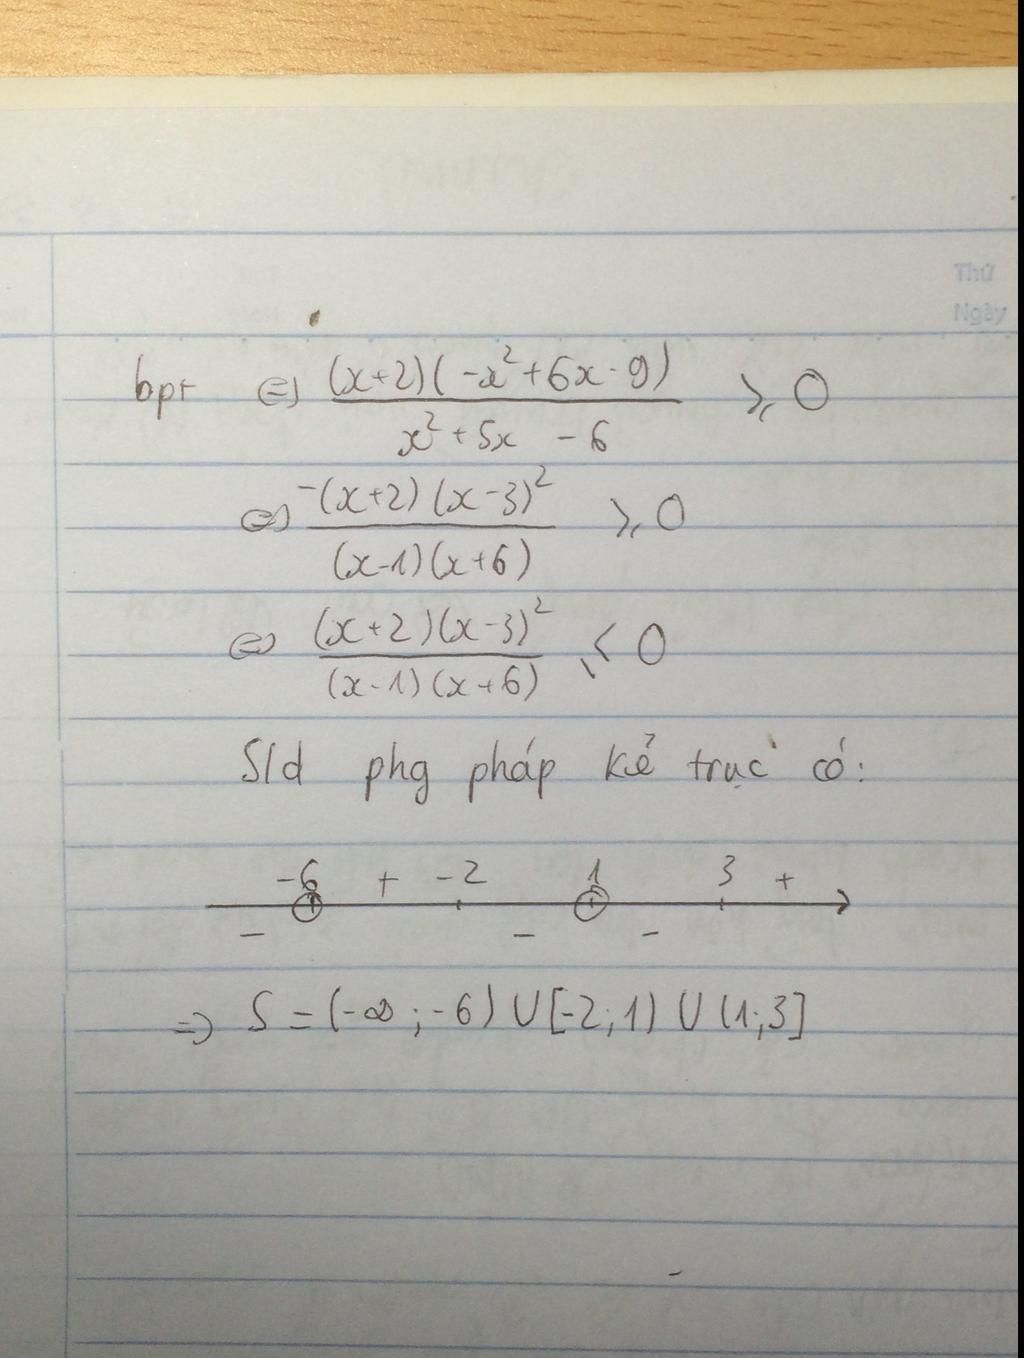 Thứ
Ngày
bpt ⇔ (x+2)(-x²+6x-9) / x²+5x -6 ⩾ 0
⇔ -(x+2)(x-3)² / (x-1)(x+6) ⩾ 0
⇔ (x+2)(x-3)² / (x-1)(x+6) ⩽ 0
S/d phg pháp kẻ trục có:
-6 + -2 1 3 +
- - -
⇒ S = (-∞; -6) ∪ [-2; 1) ∪ (1; 3]